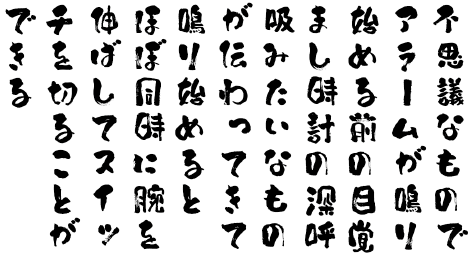 不思議なもので
アラームが鳴り
始める前の目覚
まし時計の深呼
吸みたいなもの
が伝わってきて
鳴り始めると
ほぼ同時に腕を
伸ばしてスイッ
チを切ることが
できる